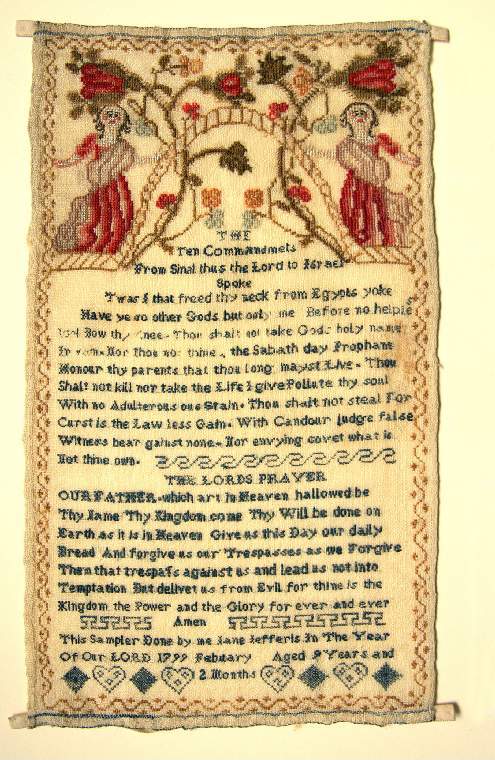 THE
Ten Commandmets
From Sinai thus the Lord to Israel
Spoke
Twas I that freed thy neck from Egypts yoke
Have ye no other Gods but only me Before no helples
Idol Bow thy knee. Thou shalt not take Gods holy name
In vain. Nor thou nor thine, the Sabath day Prophane
Honour thy parents that thou long mayst Live. Thou
Shalt not kill nor take the Life I give Pollute thy soul
With no Adulterous ous Stain. Thou shalt not steal For
Curst is the Law less Gain. With Candour judge false
Witness bear gainst none. Nor envying covet what is
Not thine own.
THE LORDS PRAYER
OUR FATHER. which art in Heaven hallowed be
Thy Name Thy Kingdom come Thy Will be done on
Earth as it is in Heaven Give us this Day our daily
Bread And forgive us our Trespasses as we Forgive
Them that trespass against us and lead us not into
Temptation But deliver us from Evil for thine is the
Kingdom the Power and the Glory for ever and ever
Amen
This Sampler Done by me Jane Jefferis In The Year
Of Our LORD 1799 Febuary Aged 9 Years and
2 Months